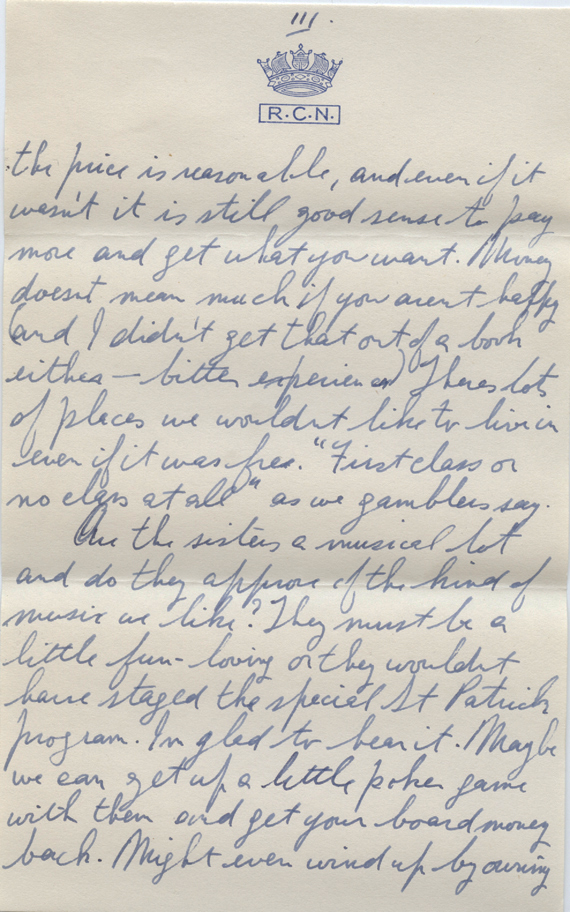 III.
R.C.N.
the price is reasonable, and even if it
wasn't it is still good sense to pay
more and get what you want. Money
doesnt mean much if you arent happy
(and I didn't get that out of a book
either — bitter experience) Theres lots
of places we wouldnt like to live in
even if it was free. "First class or
no class at all" as we gamblers say.
Are the sisters a musical lot
and do they approve of the kind of
music we like? They must be a
little fun-loving or they wouldnt
have staged the special St Patrick
program. Im glad to hear it. Maybe
we can get up a little poker game
with them and get your board money
back. Might even wind up by owning